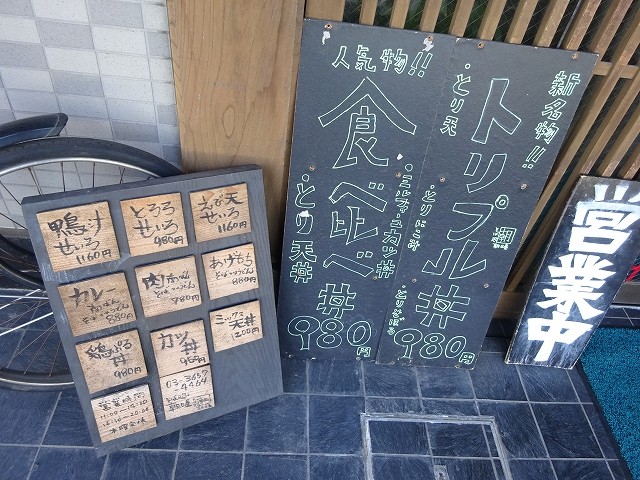 鴨汁
せいろ
1160円
とろろ
せいろ
980円
えび天
せいろ
1160円
カレー
肉
980円
あげもち
880円
鶏ぷる
丼
980円
カツ
丼
960円
ミックス
天丼
1200円
営業時間
11:00
木曜定休
03-3657
-4464
人気物!!
食べ比べ丼
・ミルフィーユカツ丼
・とり天丼
980円
新名物!!
トリプル丼
・とり天
・とりにこみ
・とりそぼろ
980円
営業中